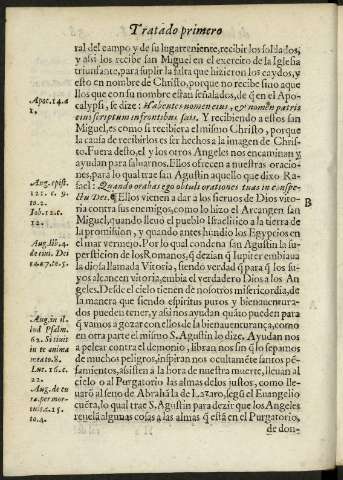 Tratado primero
ral del campo y de su lugarteniente, recibir los soldados,
y assi los recibe san Miguel en el exercito de la Iglesia
triunfante, para suplir la falta que hizieron los caydos, y
esto en nombre de Christo, porque no recibe sino aque
llos que con su nombre estan señalados, de q̃ en el Apo-
calypsi, se dize: Habentes nomen eius, & nomẽn patris
eius scriptum in frontibus suis. Y recibiendo a estos san
Miguel, es como si recibiera el mismo Christo, porque
la causa de recibirlos es ser hechos a la imagen de Chris-
to. Fuera desto, el y los otros Angeles nos encaminan y
ayudan para saluarnos. Ellos ofrecen a nuestras oracio-
nes, para lo qual trae san Agustin aquello que dixo Ra-
fael: Quando orabas ego obtuli orationes tuas in conspe-
ctu Dei. ¶ Ellos vienen a dar a los sieruos de Dios vito-
ria contra sus enemigos, como lo hizo el Arcangel san
Miguel, quando lleuo el pueblo Israelitico a la tierra de
la promission, y quando antes hundio los Egypcios en
el mar vermejo. Por lo qual condena san Agustin la su-
persticion de los Romanos, q̃ dezian q̃ Iupiter embiaua
la diosa llamada Vitoria, siendo verdad q̃ para q̃ los su-
yos alcancen vitoria, embia el verdadero Dios a los An
geles. Desde el cielo tienen de nosotros misericordia, de
la manera que siendo espiritus puros y bienauentura-
dos pueden tener, y assi nos ayudan quãto pueden para
q̃ vamos a gozar con ellos de la bienauenturança, como
en otra parte el mismo S. Agustin lo dize. Ayudan nos
a pelear contra el demonio, libran nos sin q̃ lo sepamos
de muchos peligros, inspiran nos ocultamẽte santos pẽ-
samientos, assisten a la hora de nuestra muerte, lleuan al
cielo o al Purgatorio las almas de los justos, como lle-
uarõ al seno de Abrahã la de Lazaro, segũ el Euangelio
cuẽta, lo qual trae S. Agustin para dezir que los Angeles
reuelã algunas cosas a las almas q̃ estã en el Purgatorio,
de don-
Apoc. 14. a
Aug. epist.
121. c. 9.
to. 2.
Tob. 12. c.
12.
B
Aug. lib. 4.
de ciui. Dei
Aug. in il.
lud Psalm.
62. Si sitiit
in te anima
mea to. 8.
Luc. 16. c.
22.
Aug. de cu
ra. per mor-
tuis c. 15.
to. 4.